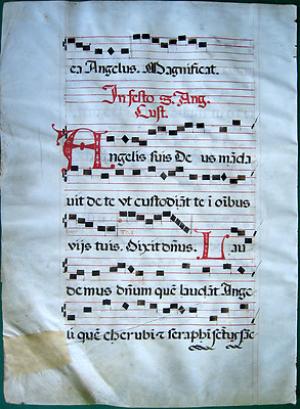 ea Angelus. Magnificat.
In festo S. Ang.
Cust.
Angelis suis De us mãda
uit de te vt custodiãt te i oĩbus
vijs tuis. Dixit dñus. Lau
demus dñum quẽ laudãt Ange
li quẽ cherubi τ seraphi